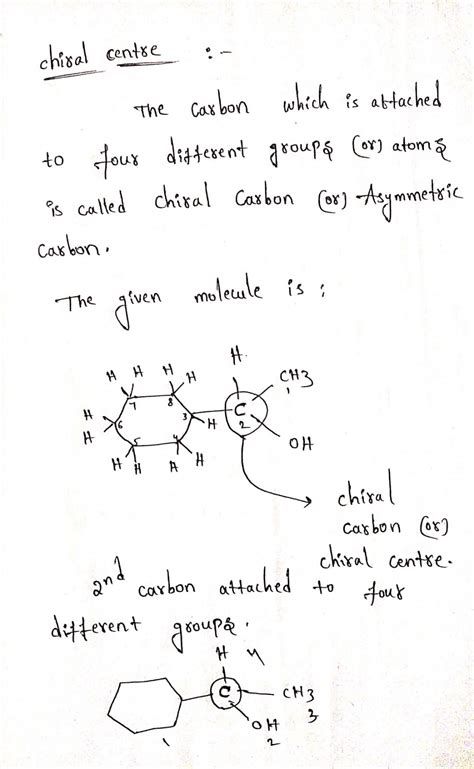 chiral centre :-
The carbon which is attached
to four different groups (or) atoms
is called chiral carbon (or) Asymmetric
carbon.
The given molecule is :
H
H H H H CH3
7 8 1
H 3 C
H 6 H 2
5 4 OH
H H H H
chiral
carbon (or)
chiral centre.
2nd carbon attached to four
different groups.
H 4
C CH3
3
1 OH
2